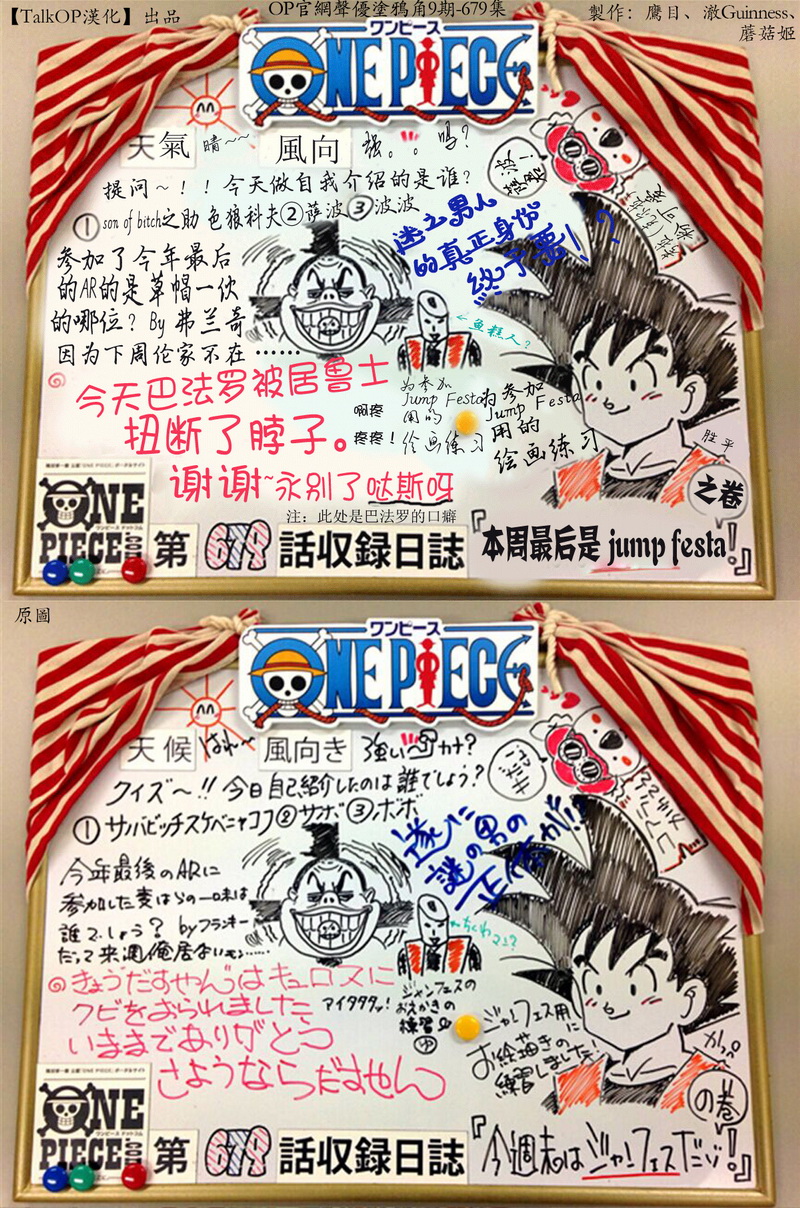 【TalkOP漢化】出品
OP官網聲優塗鴉角9期-679集
製作：鷹目、澈Guinness、
蘑菇姬
ワンピース
ONE PIECE
天氣 晴~~ 風向 强。。吗？
提问～！！今天做自我介绍的是谁？
①son of bitch之助 色狼科夫②萨波③波波
谜之男人
的真正身份
终于要！？
参加了今年最后
的AR的是草帽一伙
的哪位？By 弗兰奇
因为下周俺家不在……
←鱼糕人？
今天巴法罗被居鲁士
扭断了脖子。
谢谢~永别了哒斯呀
注：此处是巴法罗的口癖
啊疼
疼疼！
为参加
Jump Festa
用的
绘画练习
为参加
Jump Festa
用的
绘画练习
胜平
之卷
ONE
PIECE.com
ワンピース ドットコム
第 679 話収録日誌
『本周最后是 jump festa！』
原圖
ワンピース
ONE PIECE
天候 はれ～ 風向き 強い カナ？
クイズ～!!今日自己紹介したのは誰でしょう？
①サノバビッチスケベニャコフ②サボ③ボボ
遂に
謎の男の
正体が!!
今年最後のARに
参加した麦わらの一味は
誰でしょう？ byフランキー
だって来週俺居ないモン……
←ちくわマン？
きょうだすやんはキュロスに
クビをおられました
いままでありがとう
さようならだすやん
アイタタタッ！
ジャンフェスの
おえかきの
練習
ゆ
ジャンフェス用に
お絵描きの
練習しました！
かっぺ
の巻
ONE
PIECE.com
ワンピース ドットコム
第 679 話収録日誌
『今週末はジャンフェスだい！』